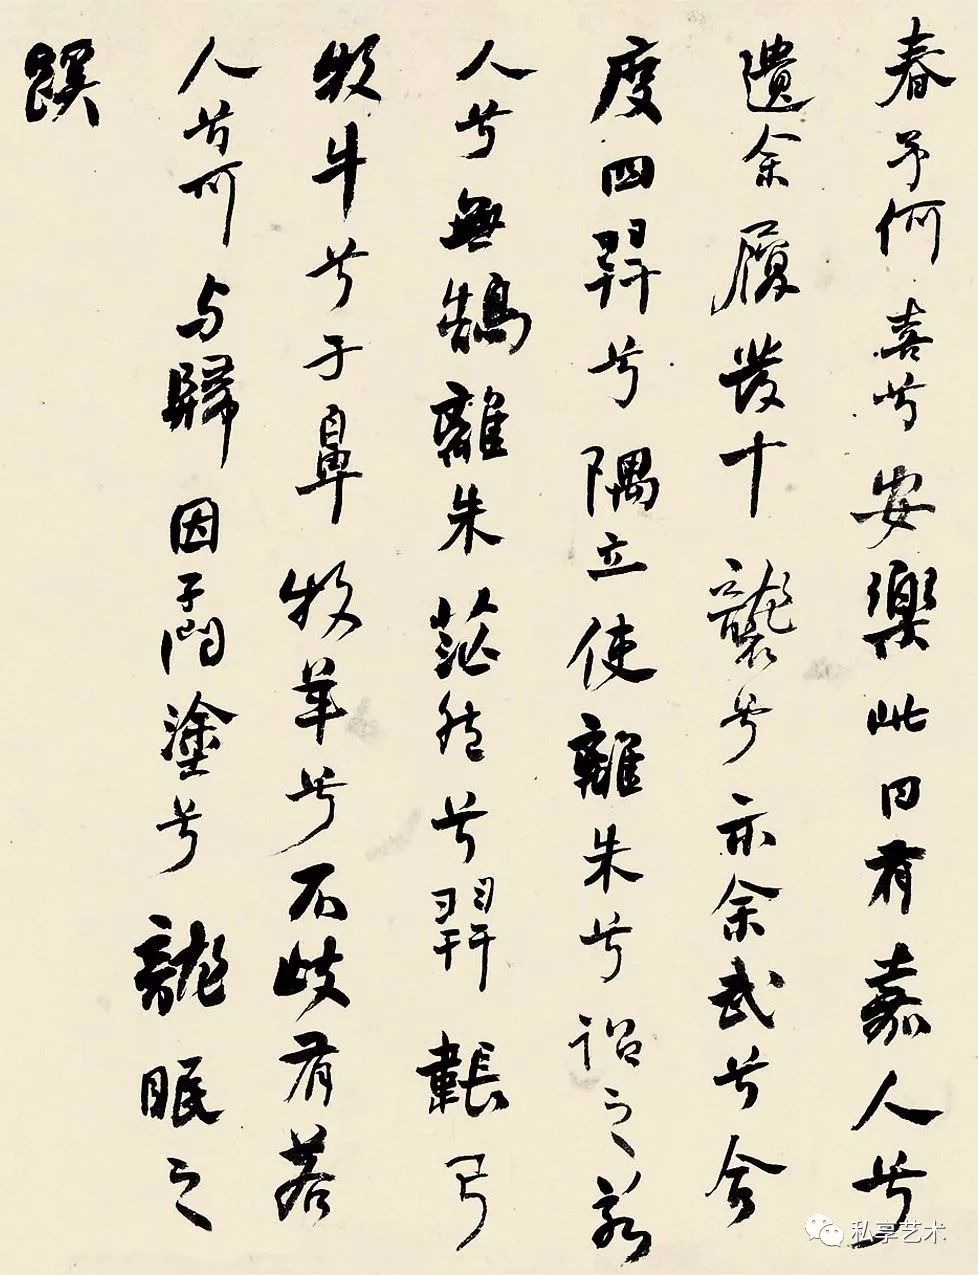 春予何喜兮安樂此日有嘉人兮
遺余履發十襲兮亦余武兮舍
度四羿兮隅立使離朱兮詔之若
人兮無鵠離朱茫然兮羿韔弓
牧牛兮于鼻牧羊兮不歧有若
人兮可与歸因子問塗兮龍眠之
蹊
私享艺术